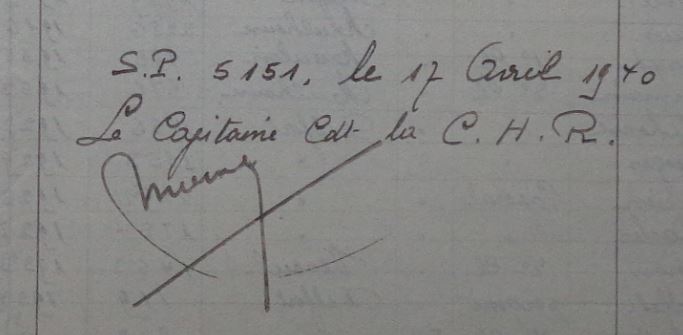 S.P. 5151, le 17 Avril 1940
Le Capitaine Cdt la C.H.R.